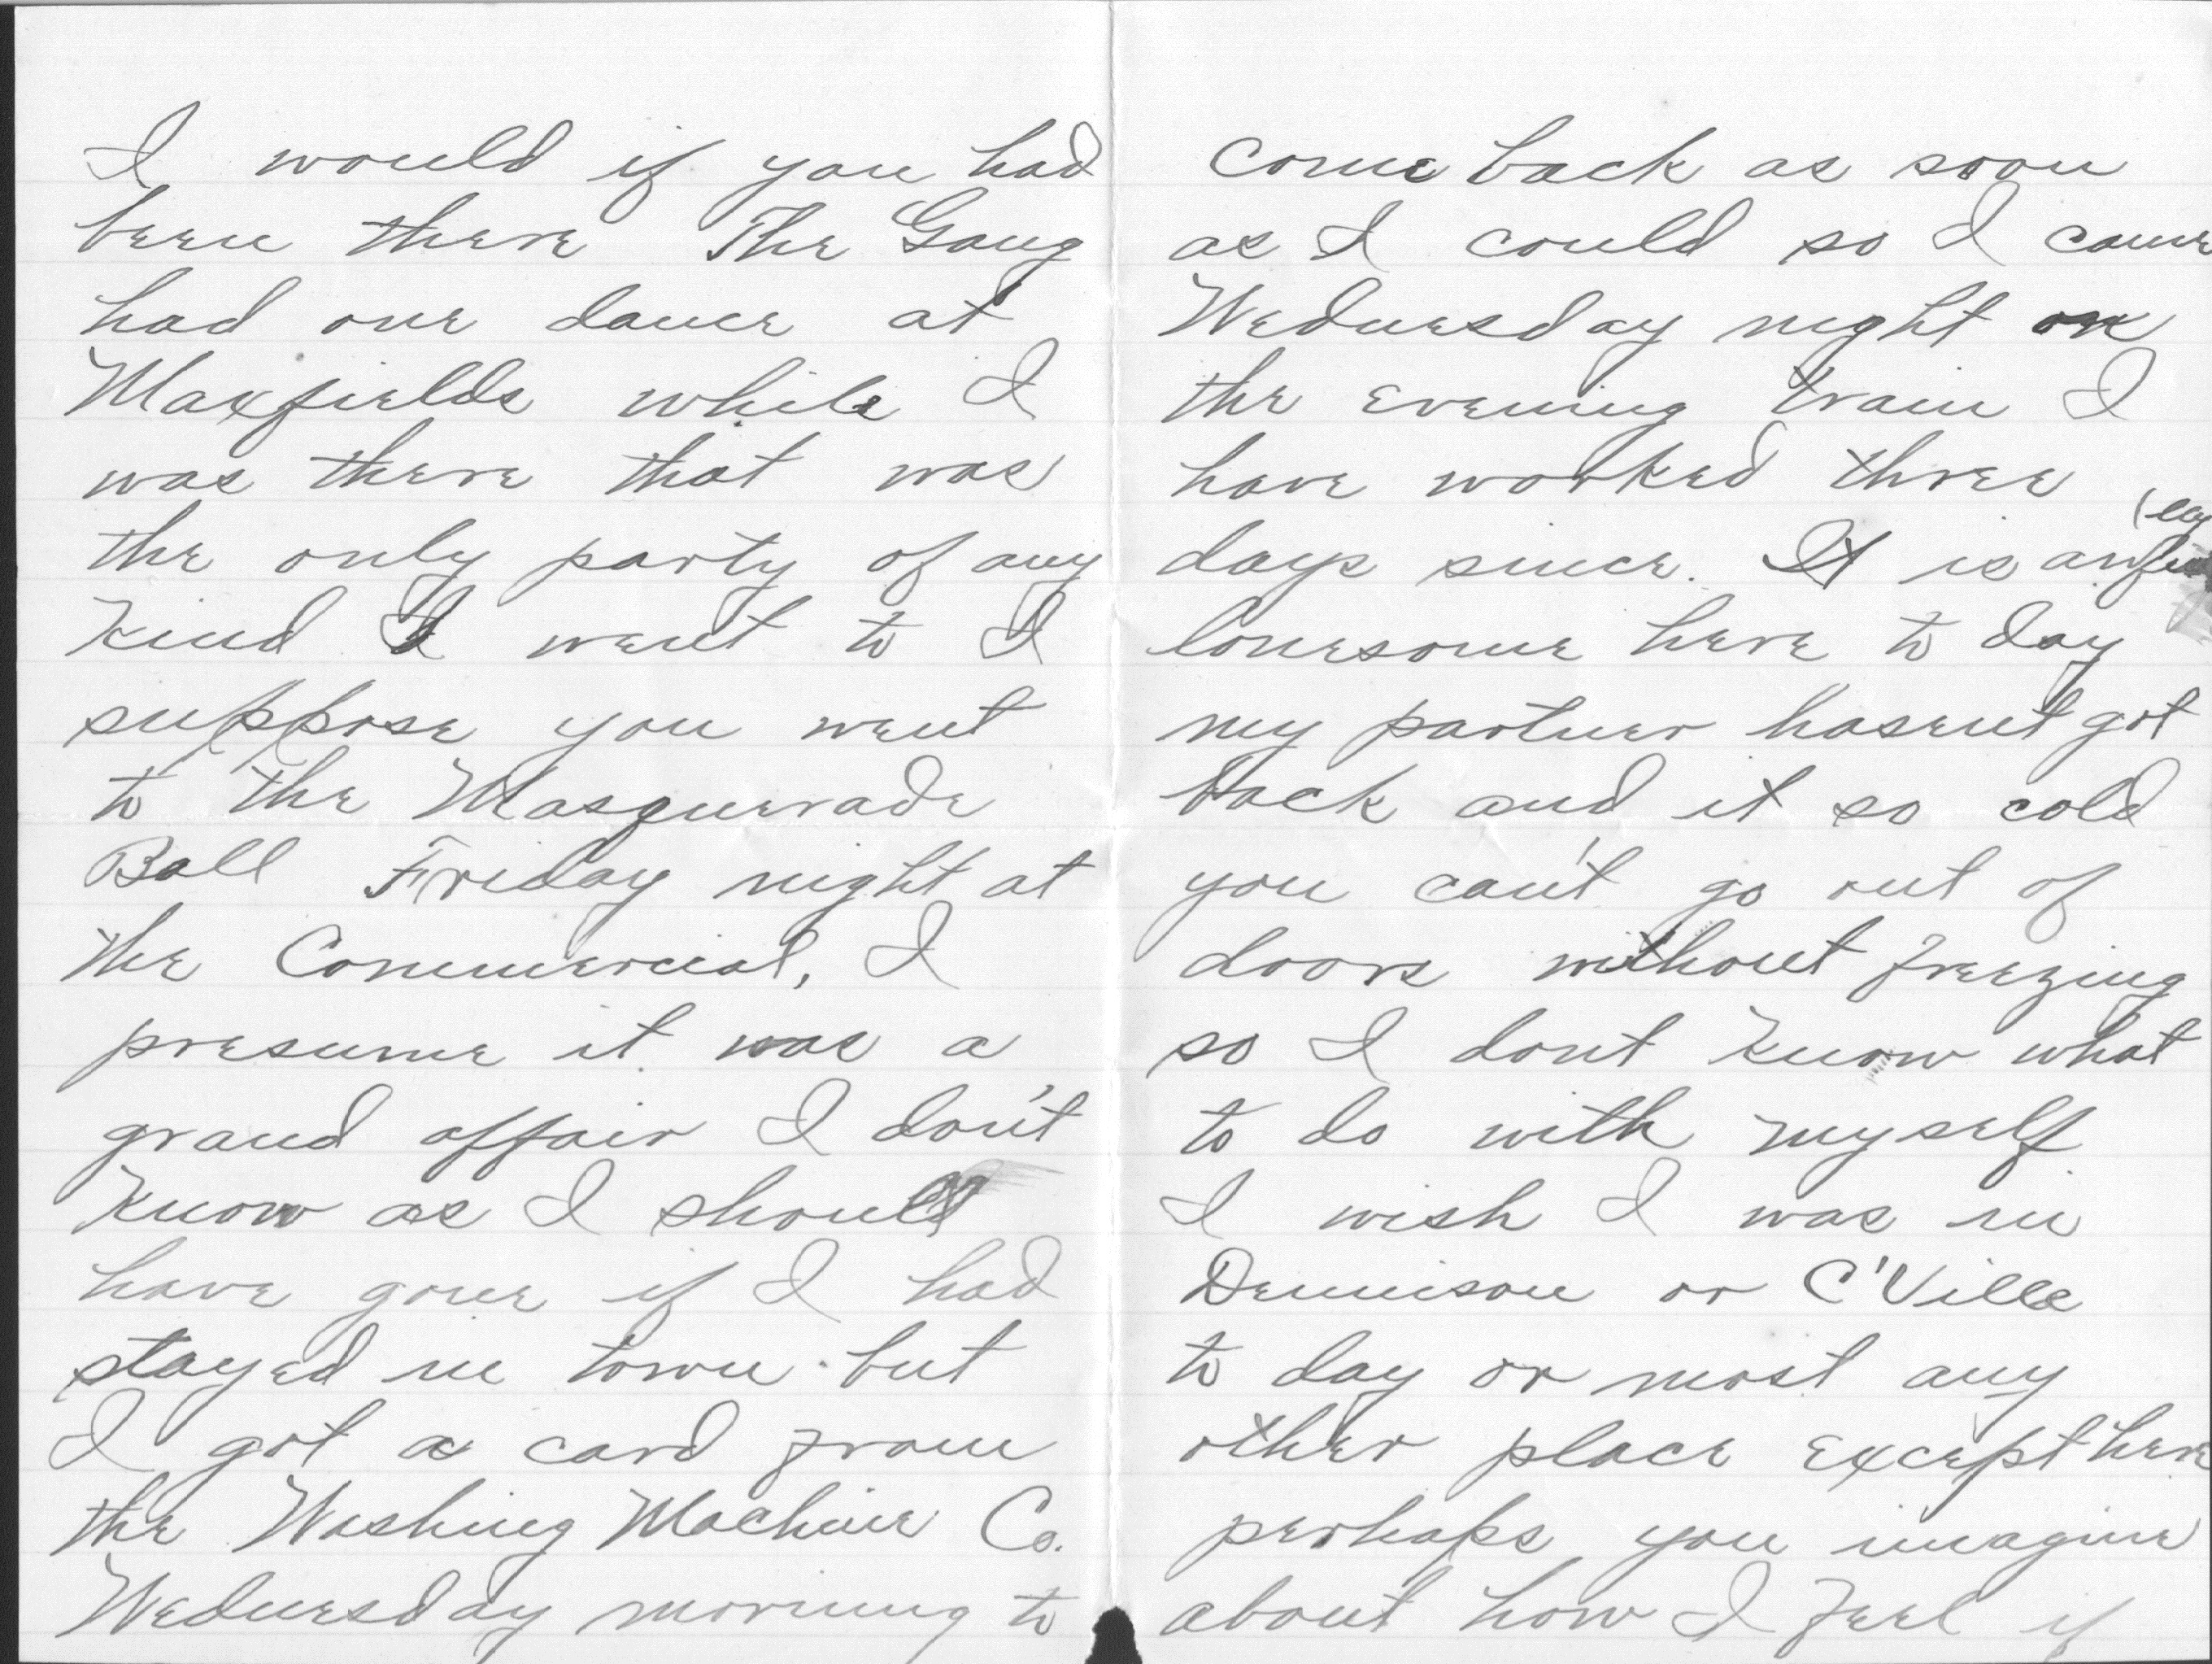 I would if you had
been there The Gang
had one dance at
Maxfields while I
was there that was
the only party of any
kind I went to I
suppose you went
to the Masquerade
Ball Friday night at
the Commercial, I
presume it was a
grand affair I don't
know as I should
have gone if I had
stayed in town but
I got a card from
the Washing Machine Co.
Wednesday morning to
come back as soon
as I could so I came
Wednesday night on
the evening train I
have worked three
days since. It is awfully
lonesome here to day
my partner hasent got
back and it so cold
you can't go out of
doors without freezing
so I dont know what
to do with myself
I wish I was in
Dennison or C'Ville
to day or most any
other place except here
perhaps you imagine
about how I feel if